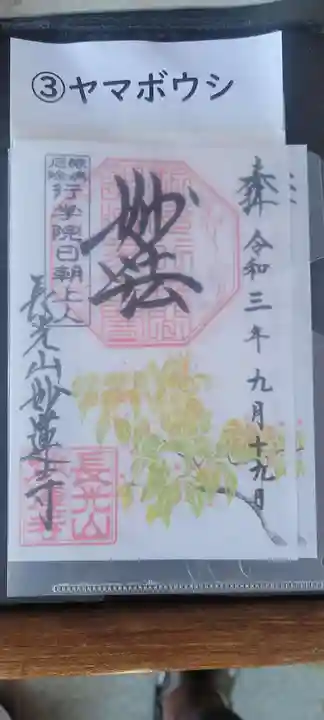 ③ヤマボウシ
奉拝 令和三年九月十九日
妙法
行学院日朝上人
長光山妙蓮寺
長光山